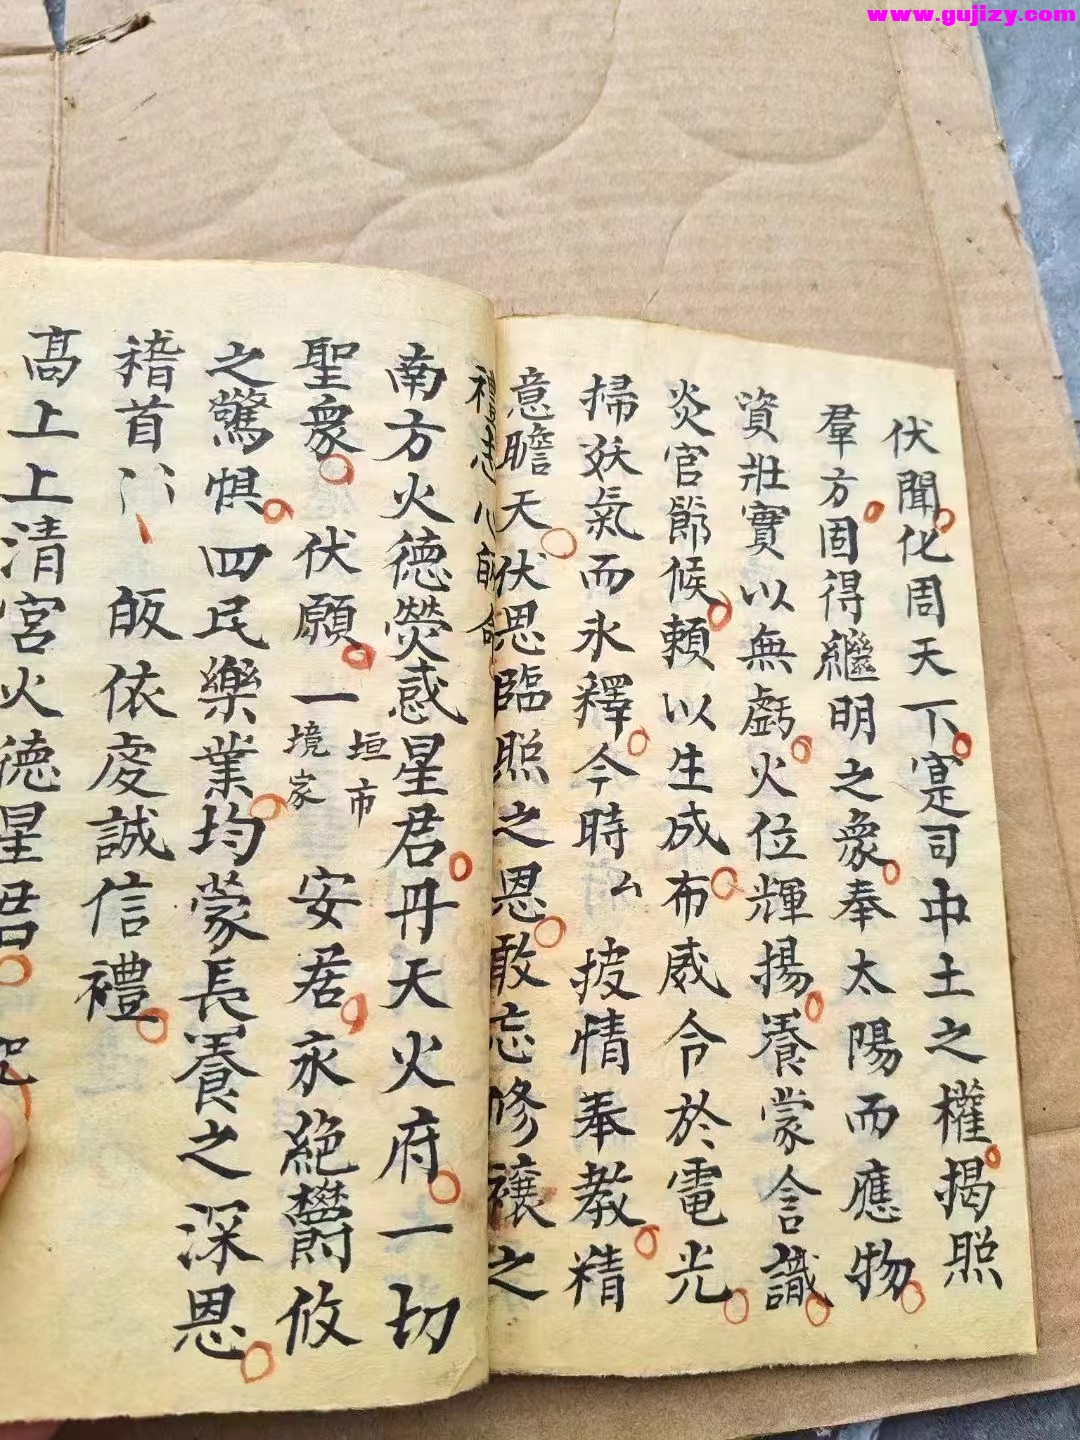 www.gujizy.com
伏聞化周天下寔司中土之權揭照
羣方固得繼明之象奉太陽而應物
資壯實以無虧火位輝揚養蒙含識
炎官節候賴以生成布威令於電光
掃妖氣而永釋今時厶披情奉教精
意瞻天伏思臨照之恩敢忘修禳之
禮志心皈命
南方火德熒惑星君丹天火府一切
聖眾伏願一垣市境家安居永絕欝攸
之驚惧四民樂業均蒙長養之深恩
稽首 皈依虔誠信禮
高上上清宮火德星君